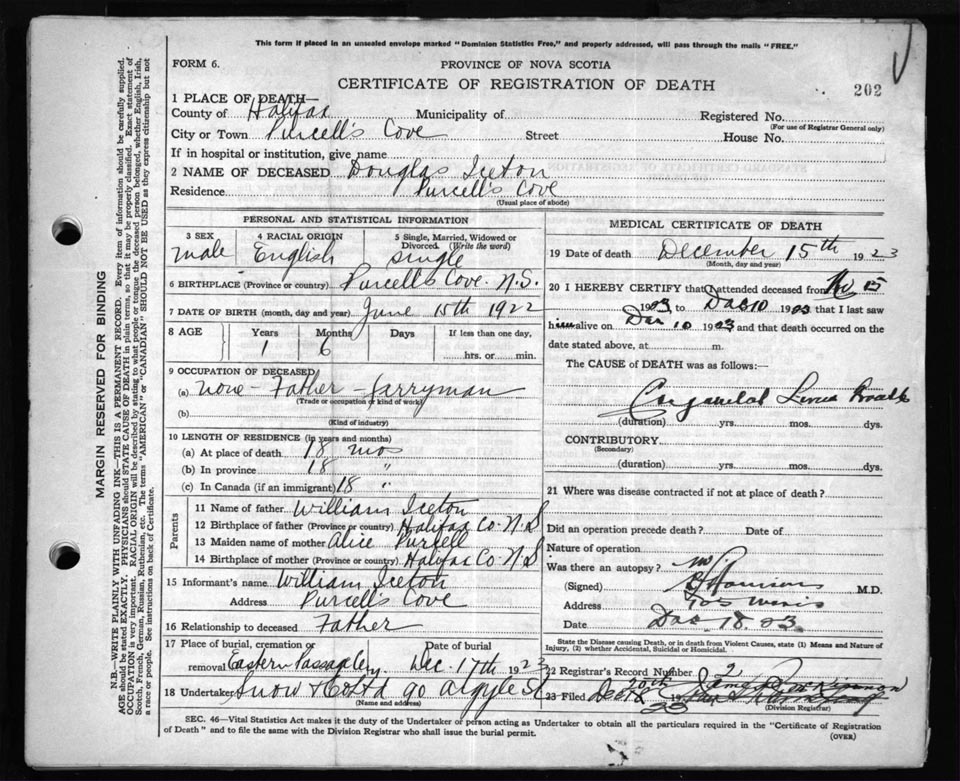 This form if placed in an unsealed envelope marked "Dominion Statistics Free," and properly addressed, will pass through the mails "FREE."
FORM 6.
PROVINCE OF NOVA SCOTIA
CERTIFICATE OF REGISTRATION OF DEATH
202
1 PLACE OF DEATH—
County of Halifax Municipality of Registered No.
(For use of Registrar General only)
City or Town Purcell's Cove Street House No.
If in hospital or institution, give name
2 NAME OF DECEASED Douglas Iceton
Residence Purcell's Cove
(Usual place of abode)
PERSONAL AND STATISTICAL INFORMATION
3 SEX 4 RACIAL ORIGIN 5 Single, Married, Widowed or Divorced (Write the word)
male English single
6 BIRTHPLACE (Province or country) Purcell's Cove. N.S.
7 DATE OF BIRTH (month, day and year) June 15th 1922
8 AGE Years Months Days If less than one day,
1 6 hrs. or min.
9 OCCUPATION OF DECEASED
(a) none - Father - farryman
(Trade or occupation or kind of work)
(b)
(Kind of industry)
10 LENGTH OF RESIDENCE (in years and months)
(a) At place of death 18 mos
(b) In province 18 "
(c) In Canada (if an immigrant) 18 "
Parents
11 Name of father William Iceton
12 Birthplace of father (Province or country) Halifax Co. N.S
13 Maiden name of mother Alice Purcell
14 Birthplace of mother (Province or country) Halifax Co. N.S
15 Informant's name William Iceton
Address Purcell's Cove
16 Relationship to deceased Father
17 Place of burial, cremation or Date of burial
removal Eastern Passage Dec. 17th 1923
18 Undertaker Snow & Co Ltd 90 Argyle St
(Name and address)
MEDICAL CERTIFICATE OF DEATH
19 Date of death December 15th 1923
(Month, day and year)
20 I HEREBY CERTIFY that I attended deceased from Nov 15
1923 to Dec 10 1923 that I last saw
him alive on Dec 10 1923 and that death occurred on the
date stated above, at m.
The CAUSE OF DEATH was as follows:
Congenital
(duration) yrs. mos. dys.
CONTRIBUTORY
(Secondary)
(duration) yrs. mos. dys.
21 Where was disease contracted if not at place of death?
Did an operation precede death? Date of
Nature of operation
Was there an autopsy? no
(Signed) M.D.
Address
Date Dec 18. 23.
State the Disease causing Death, or in death from Violent Causes, state (1) Means and Nature of Injury, (2) whether Accidental, Suicidal or Homicidal.
22 Registrar's Record Number
23 Filed 19
(Division Registrar)
SEC. 46—Vital Statistics Act makes it the duty of the Undertaker or person acting as Undertaker to obtain all the particulars required in the "Certificate of Registration
of Death" and to file the same with the Division Registrar who shall issue the burial permit.
(OVER)
MARGIN RESERVED FOR BINDING
N.B.—WRITE PLAINLY WITH UNFADING INK—THIS IS A PERMANENT RECORD. Every item of information should be carefully supplied.
AGE should be stated EXACTLY. PHYSICIANS should STATE CAUSE OF DEATH in plain terms, so that it may be properly classified. Exact statement of
OCCUPATION is very important. RACIAL ORIGIN will be described by stating to what people or tongue the deceased person belonged, whether English, Irish,
Scotch, French, German, Russian, Ruthenian, etc. The terms "AMERICAN" or "CANADIAN" SHOULD NOT BE USED as they express citizenship but not
a race or people. See instructions on back of Certificate.